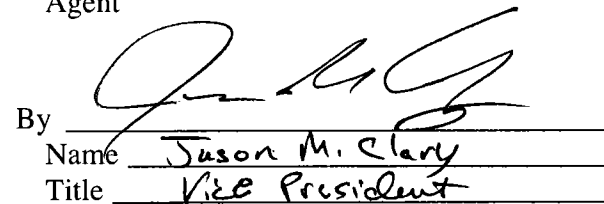 Agent
By
Name Jason M. Clary
Title Vice President